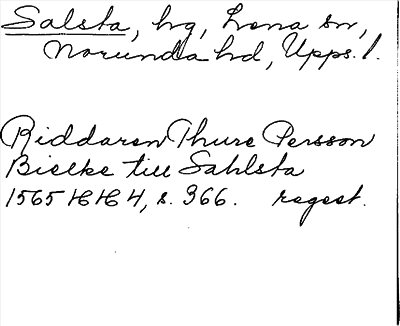 Salsta, hg, Lena sn,
Norunda hd, Upps. l.
Riddaren Thure Persson
Bielke till Sahlsta
1565 HH 4, s. 366. regest.